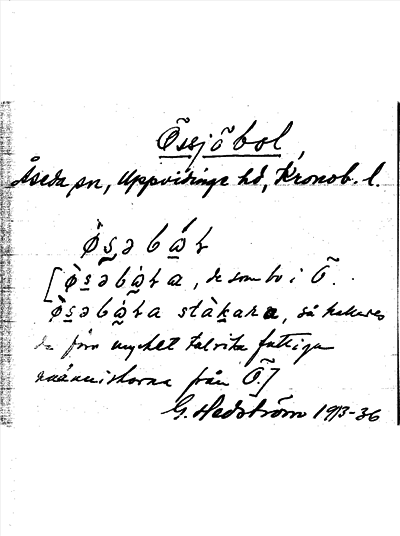 Össjöbol
Åseda sn, Uppvidinge hd, Kronob. l.
ø̀s̲əbώ̲ɫ
[ø̀s̲əbὼ̲ɫa, de som bo i Ö.
ø̀s̲əbὼ̲ɫa stàkara, så kallades
de förr mycket talrika fattiga
människorna från Ö.]
G. Hedström 1913-36